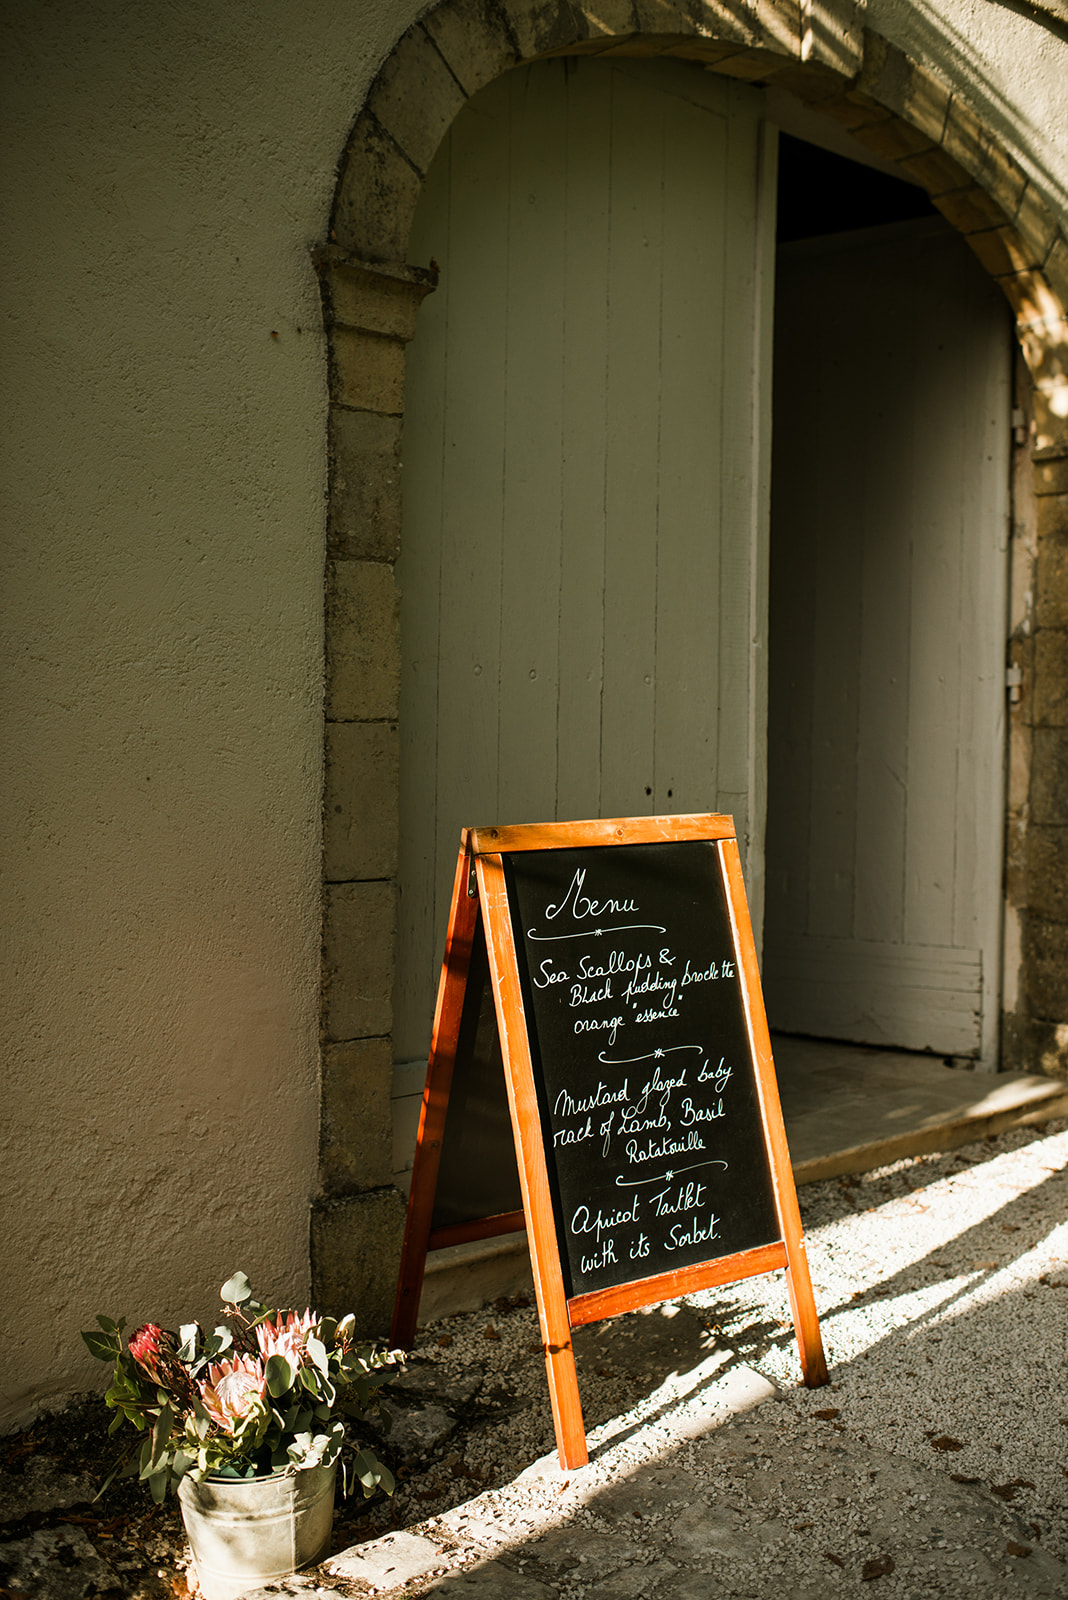 Menu
Sea Scallops &
Black pudding brochette
orange "essence"
Mustard glazed baby
rack of Lamb, Basil
Ratatouille
Apricot Tartlet
with its Sorbet.